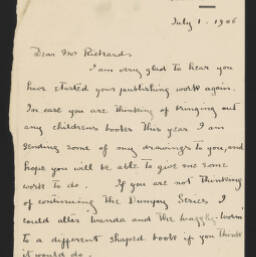 July 1. 1906
Dear Mr Richards
I am very glad to hear you
have started your publishing work again.
In case you are thinking of bringing out
any childrens books this year I am
sending some of my drawings to you, and
hope you will be able to give me some
work to do. If you are not thinking
of continuing the Dumpy Series I
could alter Wanda and the
to a different shaped book if you think
it would do.